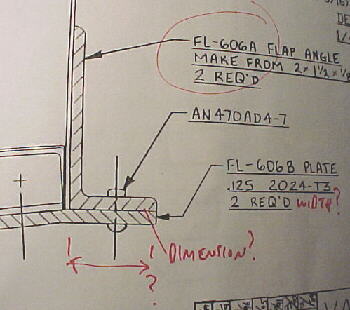 FL-606A FLAP ANGLE
MAKE FROM 2 x 1 1/2 x 1/8
2 REQ'D
AN470AD4-7
FL-606B PLATE
.125 2024-T3
2 REQ'D WIDTH?
DIMENSION?
?